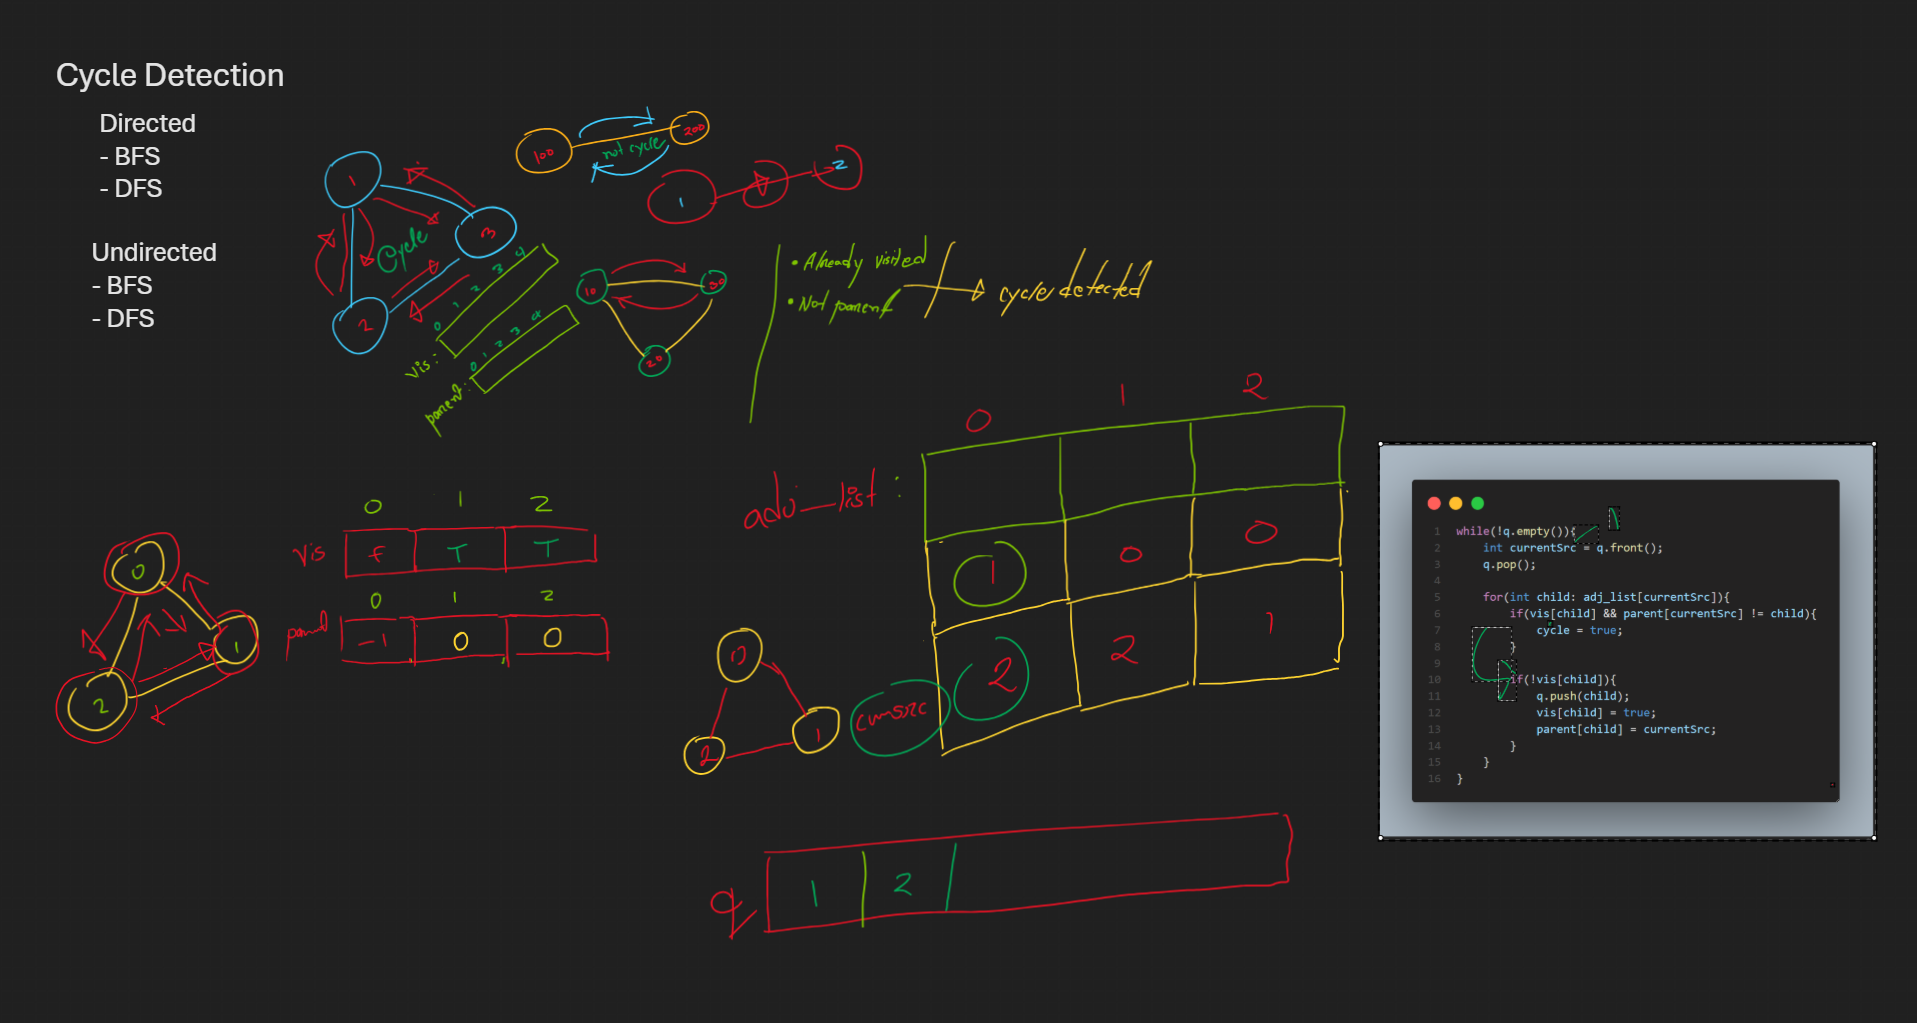 Cycle Detection
Directed
- BFS
- DFS
Undirected
- BFS
- DFS
1
3
2
Cycle
100
200
not cycle
1
2
vis:
0 1 2 3 4
parent:
0 1 2 3 4
10
20
• Already visited
• Not parent
cycle detected
0 1 2
adj_list :
1 0 0
2 2 1
0 1 2
vis f T T
0 1 2
-1 0 0
0
1
2
0
1
2
currsrc
q
1 2
1 while(!q.empty()){
2 int currentSrc = q.front();
3 q.pop();
4
5 for(int child: adj_list[currentSrc]){
6 if(vis[child] && parent[currentSrc] != child){
7 cycle = true;
8 }
9
10 if(!vis[child]){
11 q.push(child);
12 vis[child] = true;
13 parent[child] = currentSrc;
14 }
15 }
16 }